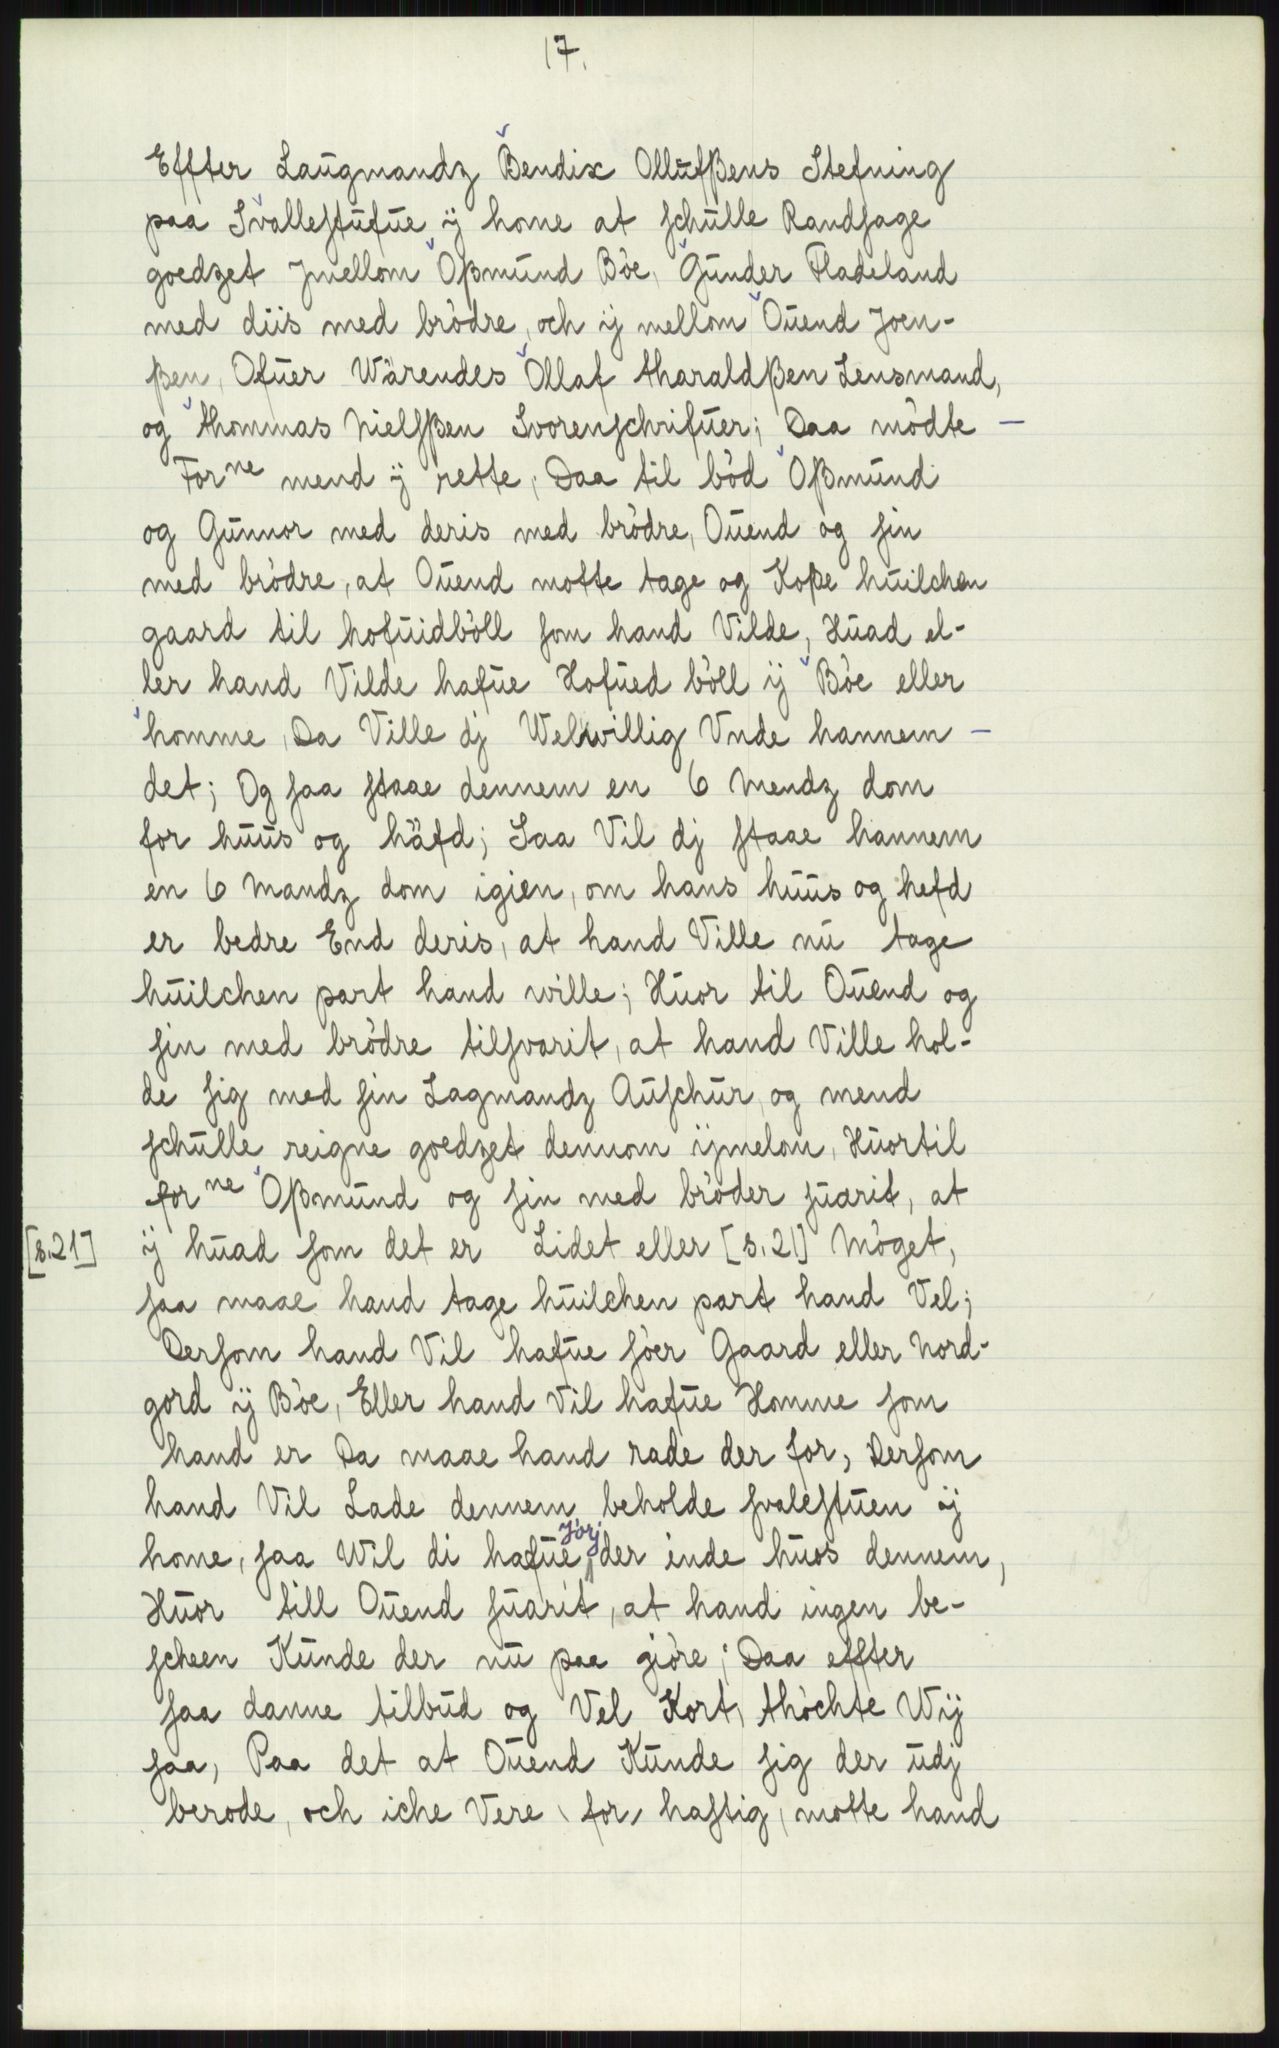 17.
Effter Laugmandz Bendix Ollufßens Stefning
paa Svallestufue ÿ home at schulle Randsage
goedzet Jmellom Oßmund Bòe, Gunder Fladeland
med diis med bròdre, och ij mellom Ouend Joen-
ßen, Ofuer Wärendes Ollaf tharaldßen Lensmand,
og thommas Nielsßen Svorenschrifuer; Daa mòdte —
For ne mend ÿ rette, Daa til bòd Oßmund
og Gunnor med deris med bròdre, Ouend og sin
med bròdre, at Ouend motte tage og Koße huilchen
gaard til hofuidbòll som hand Vilde, Huad el-
ler hand Vilde hafue Hofued bòll ij Bòe eller
homme, Da Ville dj Welwillig Vnde hannem —
det; Og saa staae dennem en 6 Mendz dom
for huus og häfd; Saa Vil dj staae hannem
en 6 Mandz dom igien, om hans huus og hefd
er bedre End deris, at hand Ville nu tage
huilchen part hand wille; Huor til Ouend og
sin med bròdre tilsvarit, at hand Ville hol-
de sig med sin Lagmandz Auschur, og mend
schulle reigne goedzet dennom ijmelom, Huortil
for ne Oßmund og sin med bròder suarit, at
[s.21] ÿ huad som det er Lidet eller [s.21] Mòget,
saa maae hand tage huilchen part hand Vel;
Dersom hand Vil hafue sòer Gaard eller Nord-
gord ij Bòe, Eller hand Vil hafue Homme som
hand er Da maae hand rade der for, Dersom
hand Vil Lade dennem beholde svalestuen ij
home, saa Wil di hafue Jorj der inde huos dennem,
Huor till Ouend suarit, at hand ingen be-
scheen Kunde der nu paa giòre; Daa effter
saa danne tilbud og Vel Kort, thòchte Wij
saa, Paa det at Ouend Kunde sig der udj
berode, och iche Vere for hastig, motte hand